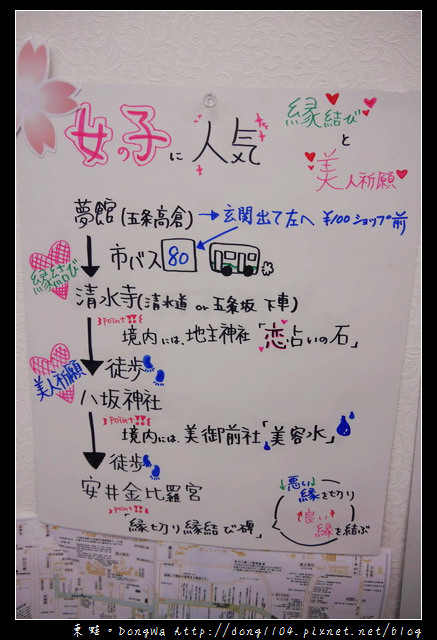 女の子に人気
縁結び
と
美人祈願
夢館(五条高倉)→玄関出て左へ ¥100ショップ前
市バス 80
縁結び
清水寺(清水道 or 五条坂 下車)
point!!
境内には、地主神社「恋占いの石」
美人祈願
徒歩
八坂神社
point!!
境内には、美御前社「美容水」
徒歩
安井金比羅宮
point!!
「縁切り縁結び碑」
悪い
縁を切り
良い
縁を結ぶ
東蛙。DongWa http://dong1104.pixnet.net/blog